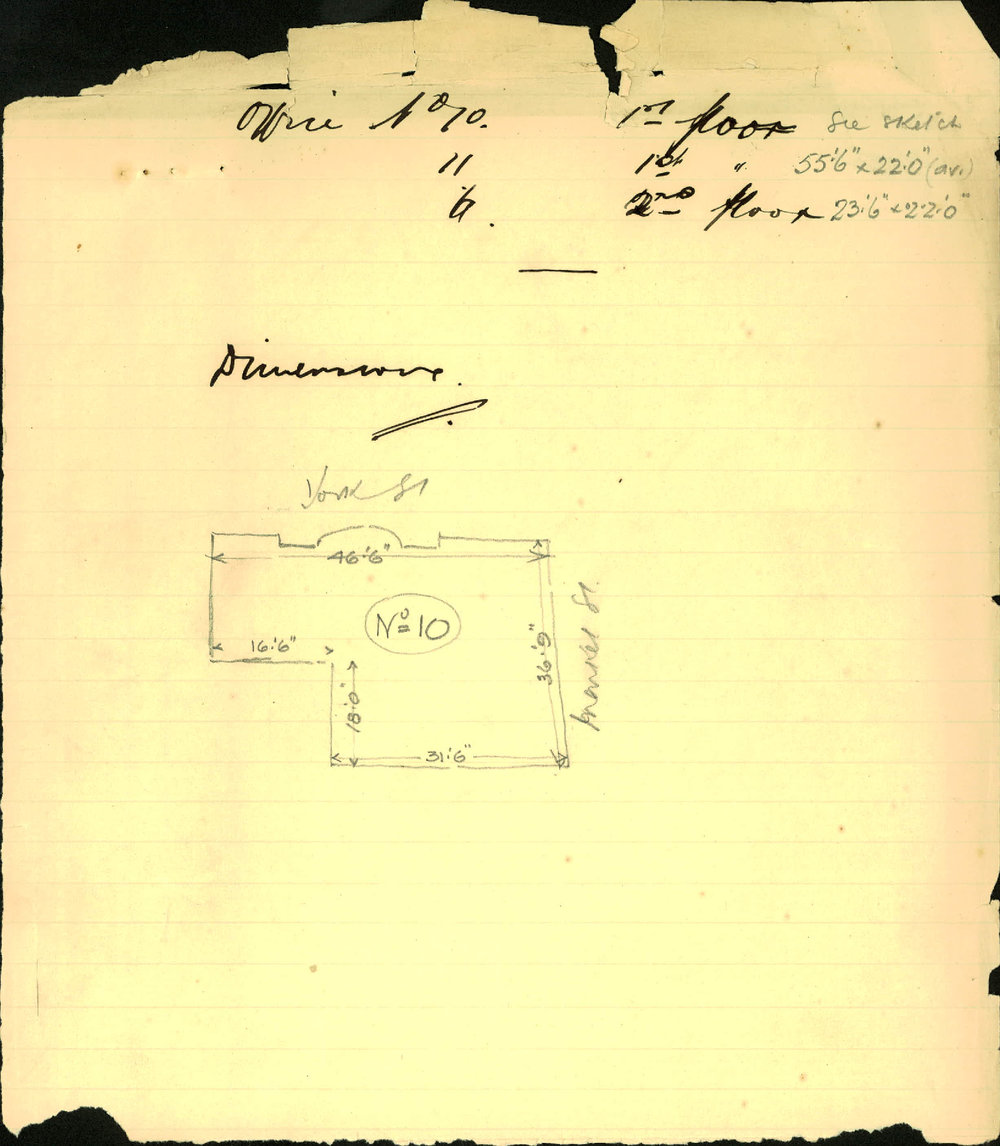 Office No 10. 1st floor See sketch
11 1st " 55'.6" x 22'.0" (av.)
6. 2nd floor 23'.6" x 22'.0"
Dimensions.
York St
46'.6"
No 10
16'.6"
36'.9"
St.
18'.0"
31'.6"